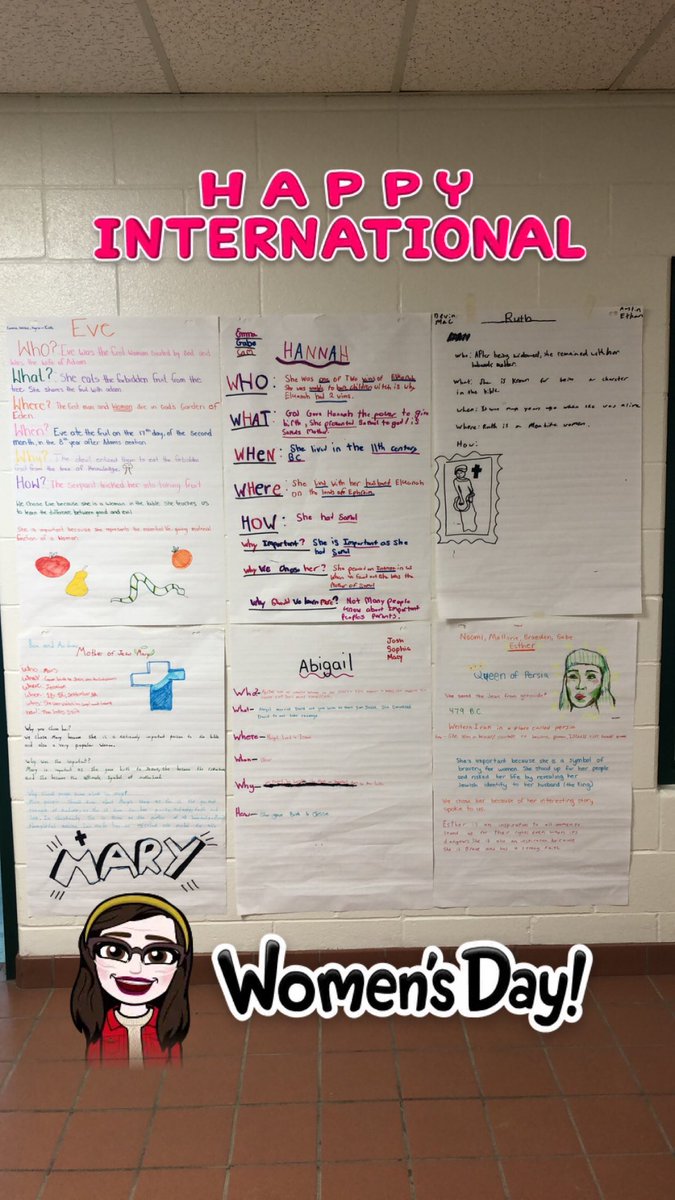 HAPPY
INTERNATIONAL
Eve
Who? Eve was the first woman created by God and
was the wife of Adam.
What? She eats the forbidden fruit from the
tree. She shares the fruit with adam
Where? The first man and woman are in God's Garden of
Eden.
When? Eve ate the fruit on the 17th day, of the second
month, in the 8th year after Adams creation
Why? The devil enticed them to eat the forbidden
fruit from the tree of knowledge.
How? The Serpant tricked her into taking fruit
We chose Eve because she is a woman in the bible. She teaches us
to learn the different between good and evil
She is important because she represents the essential life giving maternal
function of a woman.
Emma
Gabe
Cam
HANNAH
WHO: She was one of two wives of Elkanah
She was unable to have children witch is why
Elkanah had 2 wives.
WHAT: God Gave Hannah the power to give
birth, She presented Samuel to god / is
Samuels Mother
WHEN: She lived in the 11th century
B.C
WHere: She lived with her husband Elkanah
on the lands off Ephraim
HOW: She had Samuel
Why Important? She is Important as She
had Samuel
Why We Chose her?
Mother of Samuel
Why Should We learn more? Not Many people
know about Important
Peoples Parents.
Devin
Mac
Ruth
Austin
Ethan
Who: After being widowed, she remained with her
husbands mother.
What: She is known for being a character
in the bible.
When: It was many years ago when she was alive
Where: Ruth is a Moabite woman.
How:
Ben and Audrey
Mother of Jesus Mary
Who: Mary
What?
Where:
When:
Why
How:
Why you chose her?
We chose Mary because she is a extremely important person in the bible
and also a very popular woman.
Why was she important?
Mary is important as she gave birth to Jesus
and she became the ultimate symbol of
MARY
Abigail
Josh
Sophia
Macy
Who-
What- Abigail married David
David to not seek revenge
Where- Abigail lived in
When-
Why-
How- She gave birth to
Naomi, Mallory, Braeden, Gabe
Esther
Queen of Persia
"She saved the Jews from genocide"
479 B.C
Western Iran in a place called persia
She's important because she is a symbol of
bravery for women. She stood up for her people
and risked her life by revealing her
Jewish identity to her husband (the king)
We chose her because of her interesting story
spoke to us.
Esther is an inspiration to all women to
stand up for their rights even when its
dangerous. She is also an inspiration because
she is Brave and has a strong faith
Women's Day!